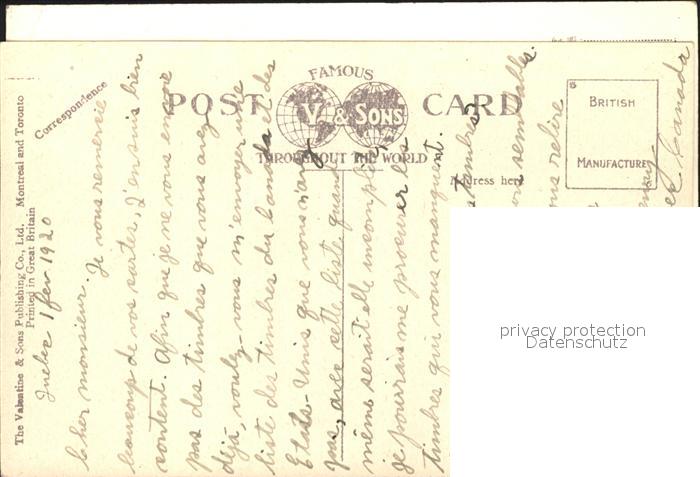 The Valentine & Sons Publishing Co., Ltd. Montreal and Toronto
Printed in Great Britain
Correspondence
FAMOUS
POST CARD
V & SONS
THROUGHOUT THE WORLD
Address here
BRITISH
MANUFACTURE
Quebec 1 fev 1920
Cher monsieur. Je vous remercie
beaucoup de vos cartes, j'en suis bien
content. Afin que je ne vous envoie
pas des timbres que vous avez
déjà, voulez-vous m'envoyer une
liste des timbres du Canada et des
Etats-Unis que vous n'avez
pas, avec cette liste quand
même serait elle incomplète
je pourrais me procurer les
timbres qui vous manquent.
timbres
semblables.
relire
Canada
privacy protection
Datenschutz